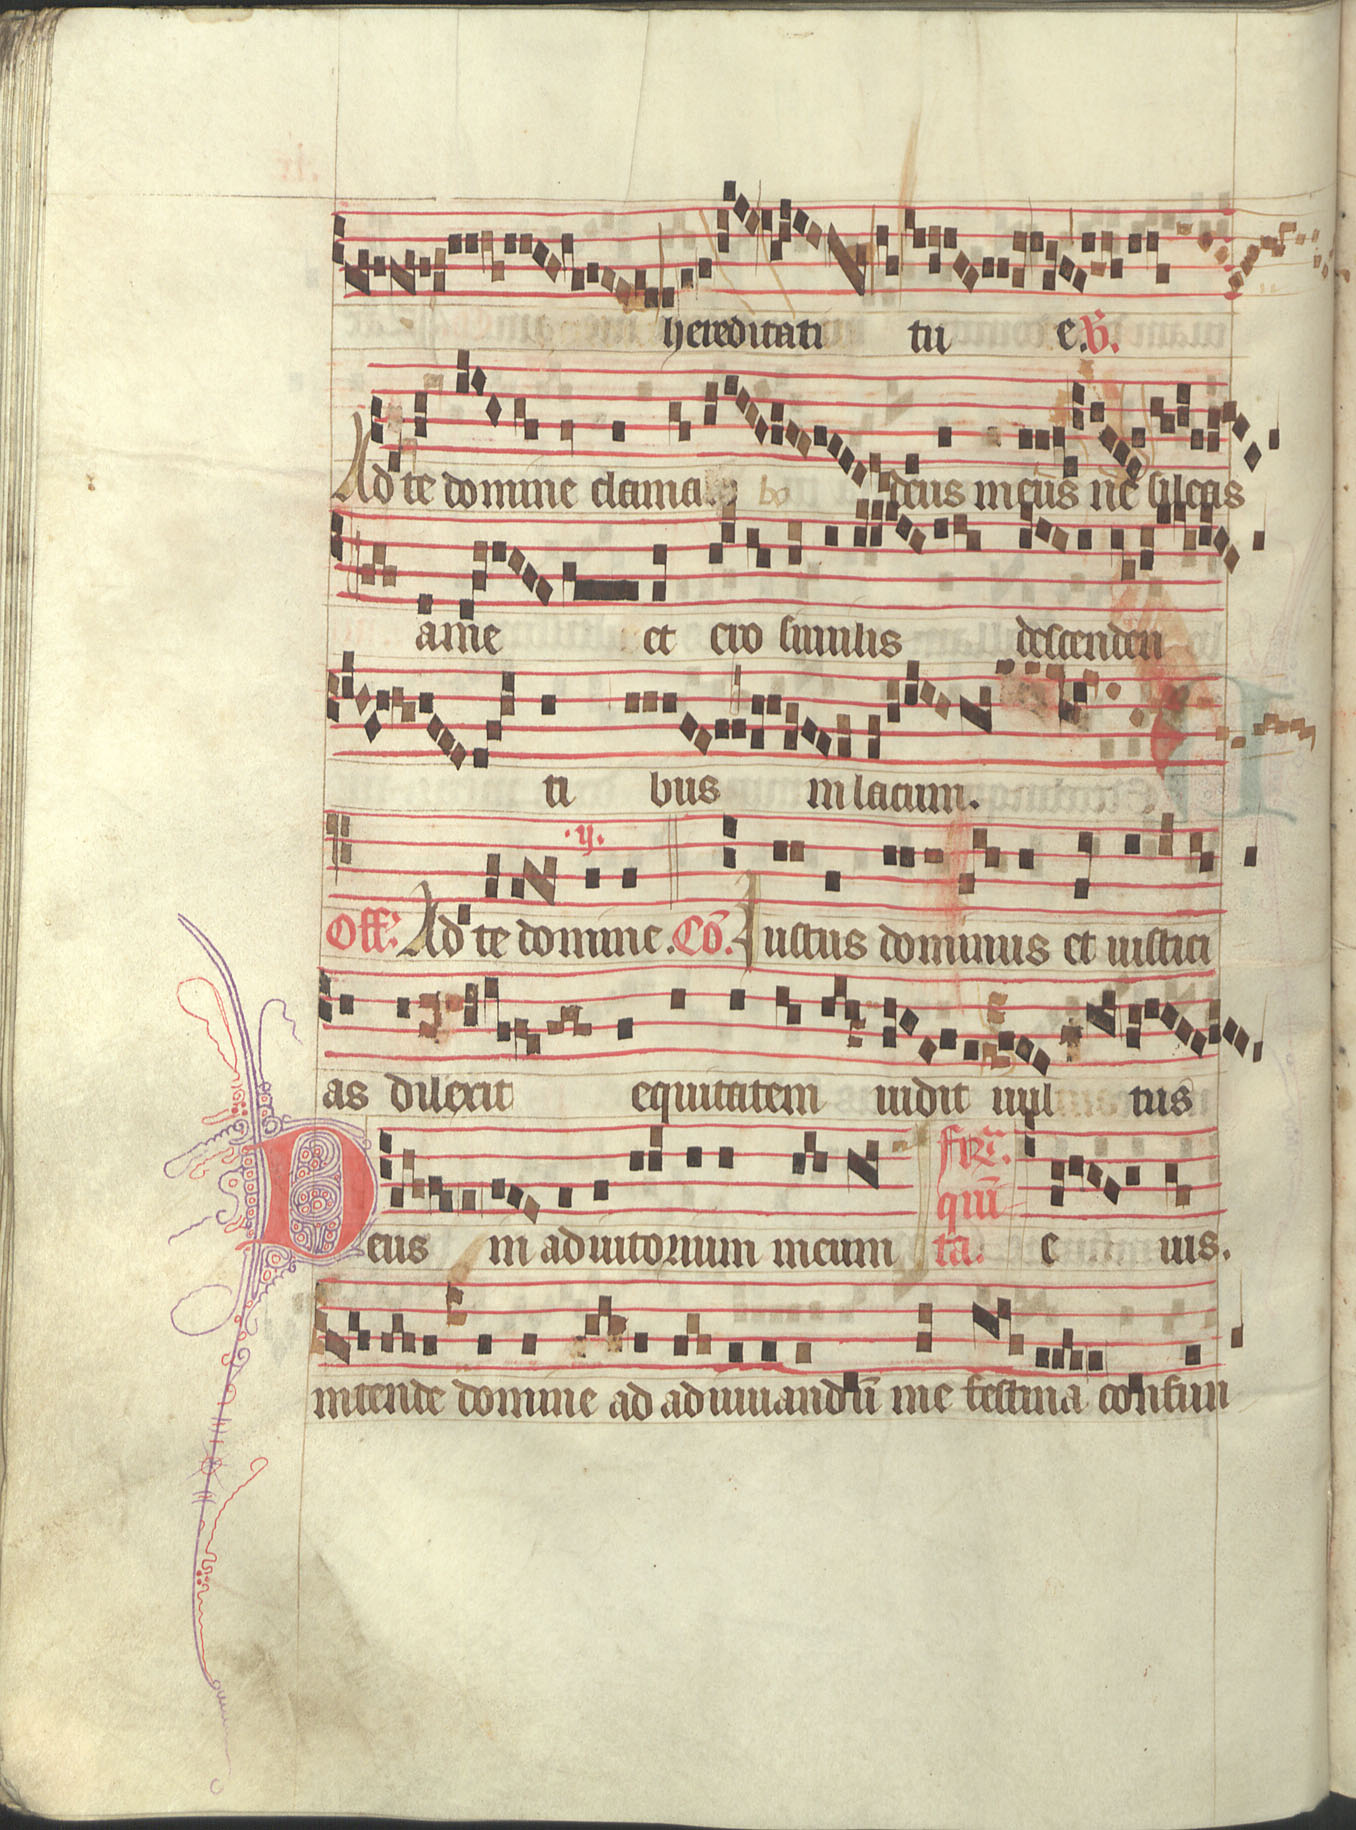 hereditati tu e. V̄.
Ad te domine clama bo deus meus ne sileas
a me et ero similis descenden
ti bus in lacum.
.ij.
Off̄. Ad te domine. Cō. Iustus dominus et iustici
as dilexit equitatem uidit uul tus
Deus in adiutorium meum
qui
ta. e ius.
intende domine ad adiuuandū me festina confun